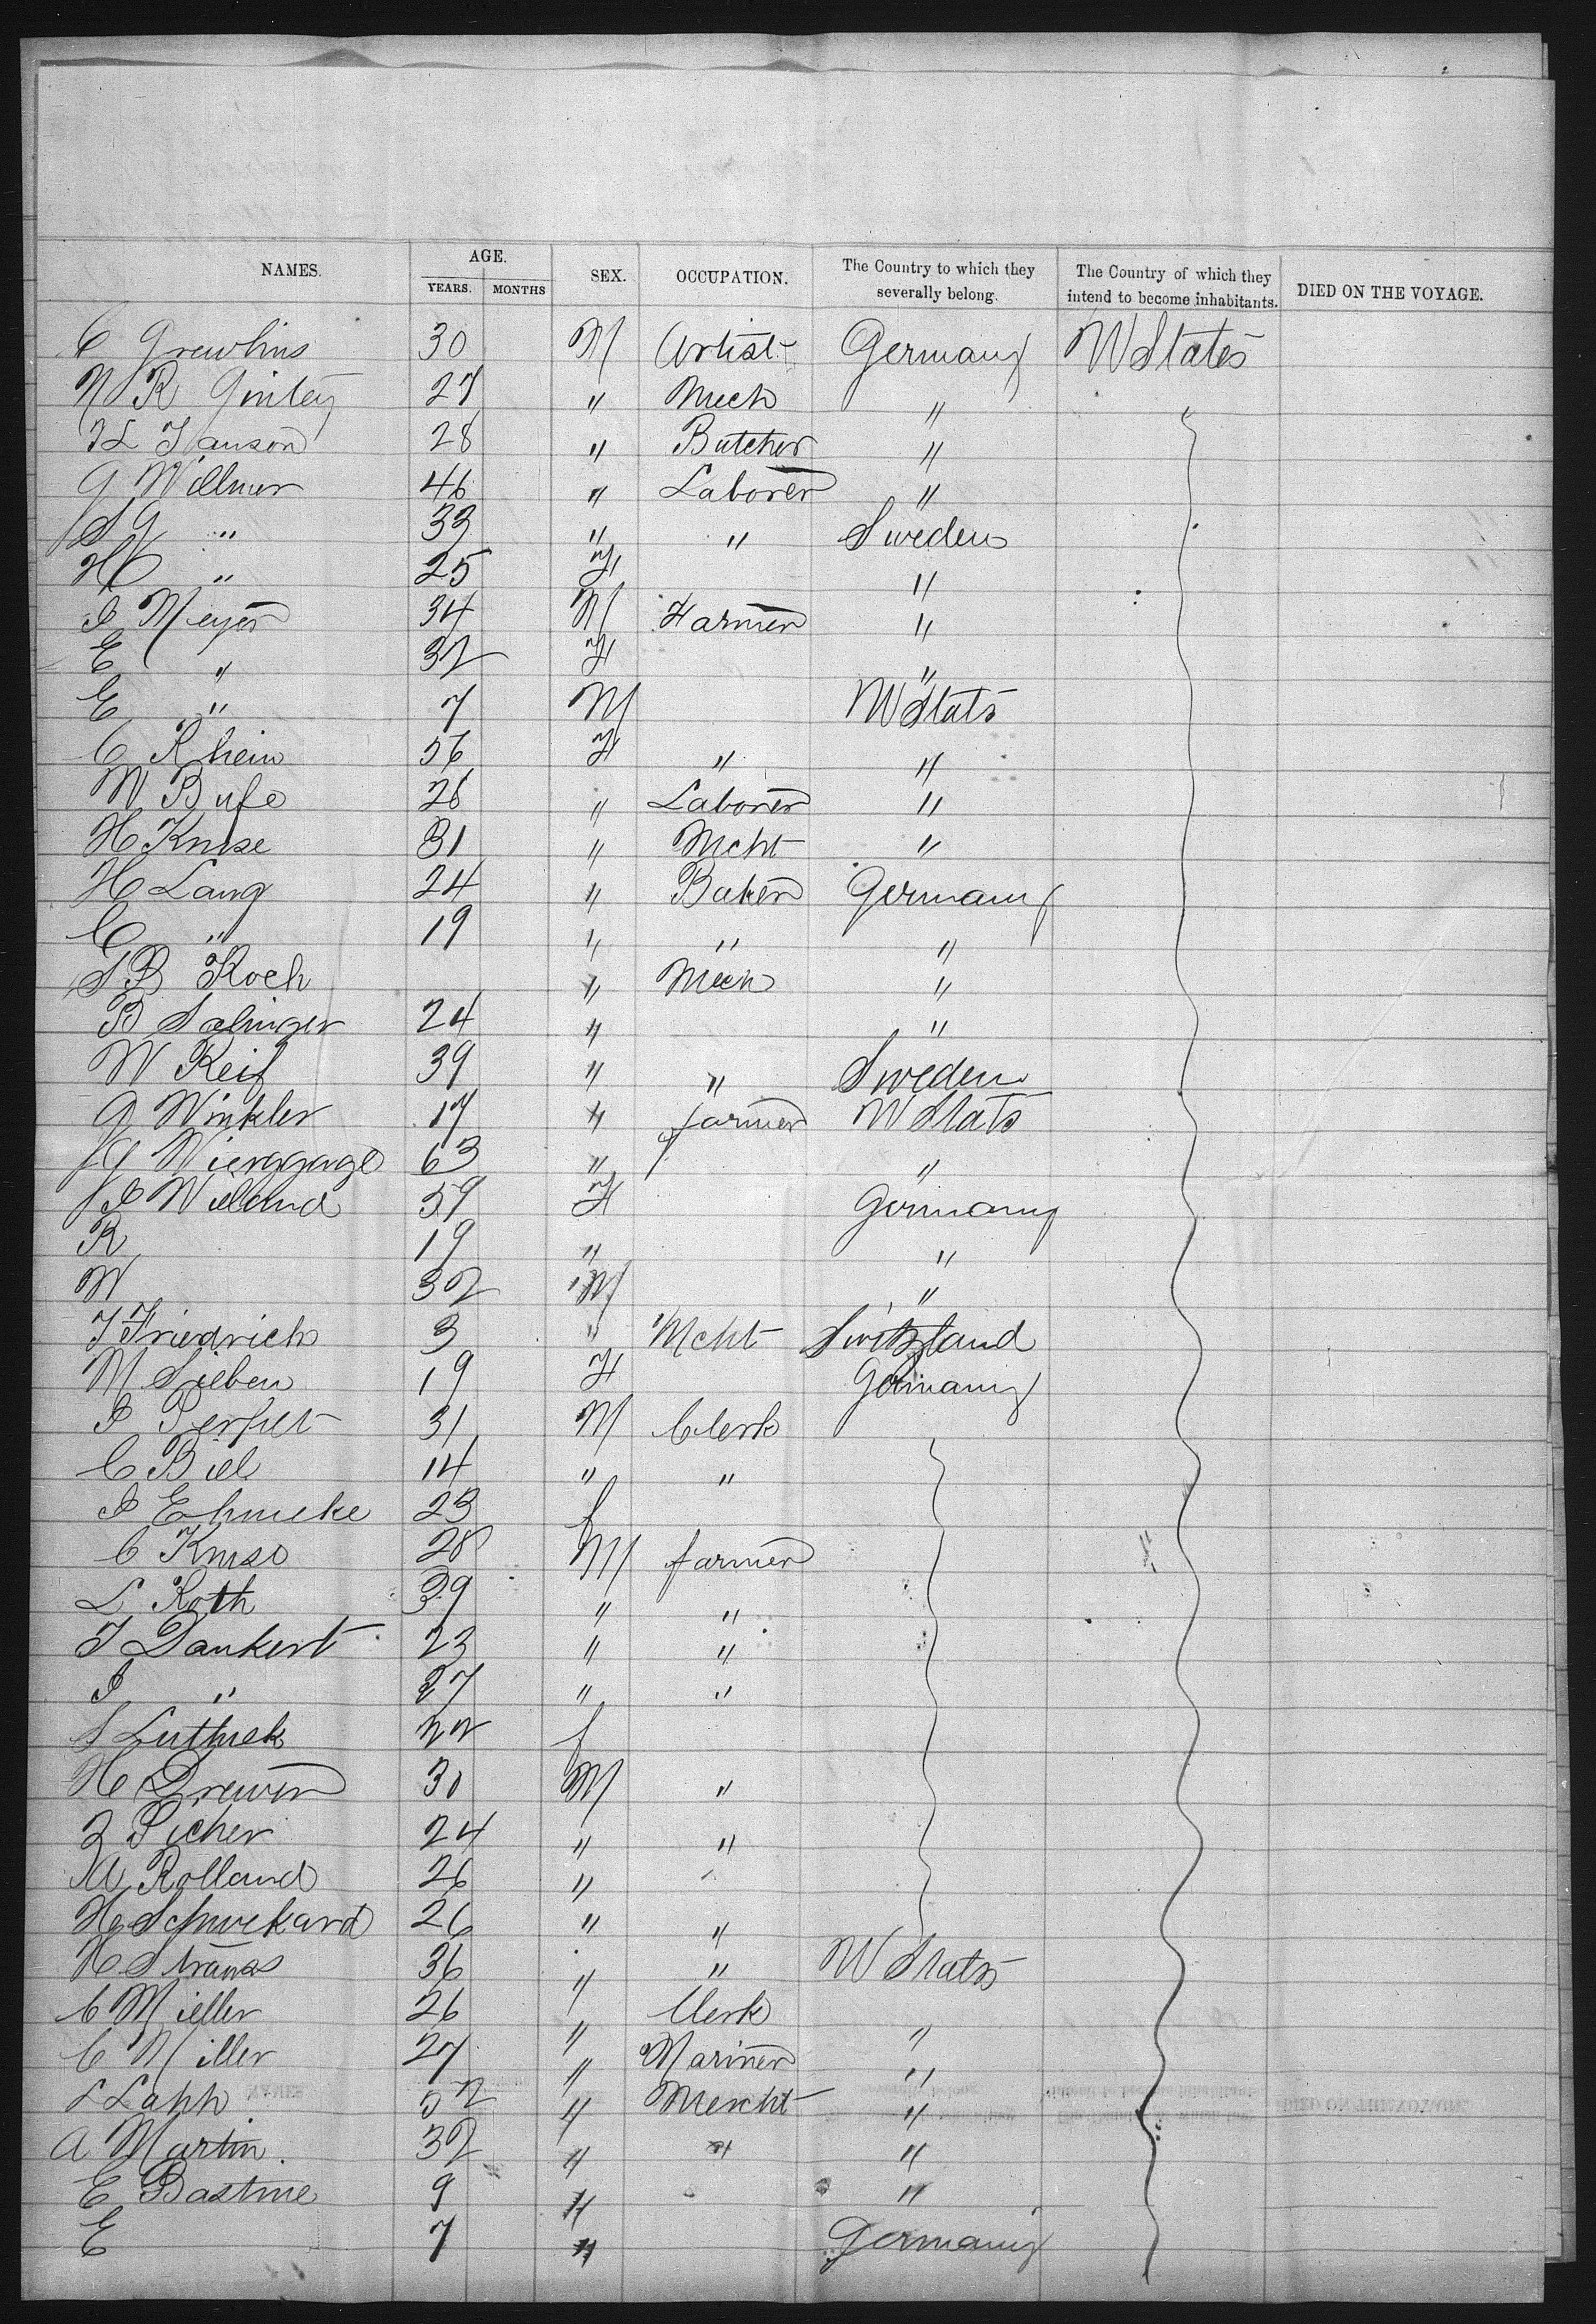 NAMES. AGE. YEARS. MONTHS SEX. OCCUPATION. The Country to which they severally belong. The Country of which they intend to become inhabitants. DIED ON THE VOYAGE.
C Grewlins 30 M Artist Germany W States
N R Ginley 27 " Mech "
28 " Butcher "
G Willmer 46 " Laborer "
S G " 33 " " Sweden
H " 25 F "
I Meyer 34 M Farmer "
E " 32 F "
E " 7 M W Stats
C Rhein 56 F " "
W Bufe 26 " Laborer "
H Kruse 31 " Mcht "
H Lang 24 " Baker Germany
C " 19 " " "
S B Koch " Mech "
B Salinger 24 " "
W Reif 39 " " Sweden
G Winkler 17 " farmer W Stats
G Wierggage 63 " "
I Wieland 59 F Germany
R 19 " "
W 32 M "
J Friedrich 3 " Mcht Switzland
M Sieben 19 F Germany
I 31 M Clerk
C Biel 14 " "
I Ehmcke 23 f
C Kruse 28 M farmer
L Roth 39 " "
J Dankert 23 " "
I " 27 " "
S Luthsek 22 f
H Drewer 30 M "
Z Picher 24 " "
M Rolland 26 "
H Schwekard 26 " "
H Strauss 36 " " W Stats
C Mieller 26 " Clerk "
C Miller 27 " Mariner "
L Lapp 52 " Mercht "
A Martin. 32 " " "
E Bastine 9 " "
E 7 " Germany